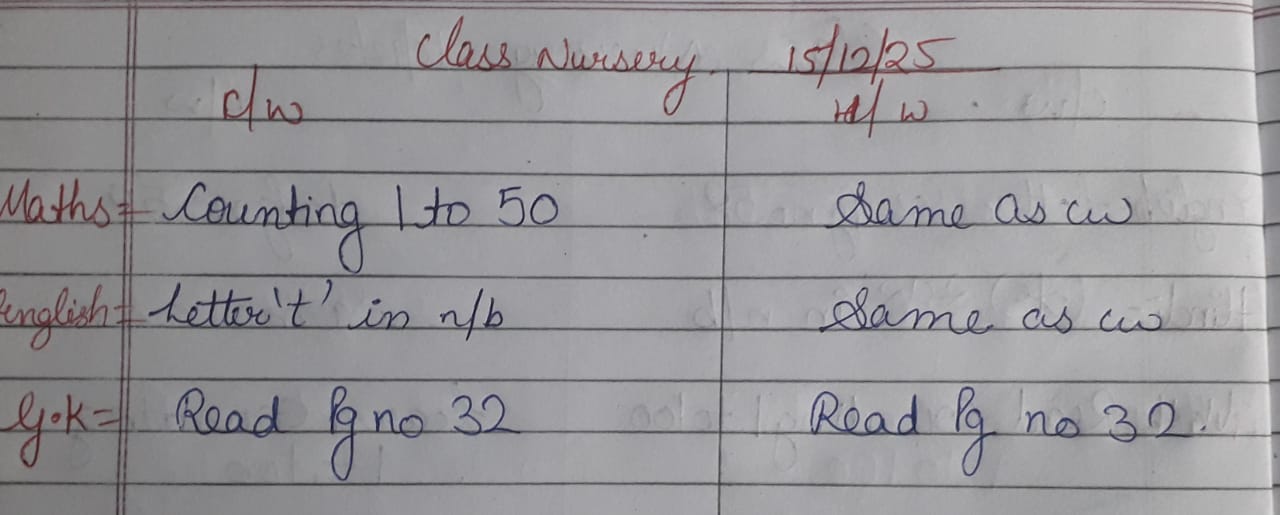 Class Nursery 15/12/25
c/w H/w
Maths = Counting 1 to 50 Same as cw
English = Letter 't' in n/b Same as cw
G.K = Read Pg no 32 Read Pg no 32.